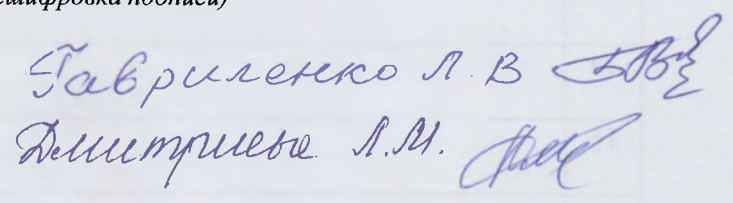 расшифровка подписи)
Гавриленко Л. В
Дмитриева Л.М.